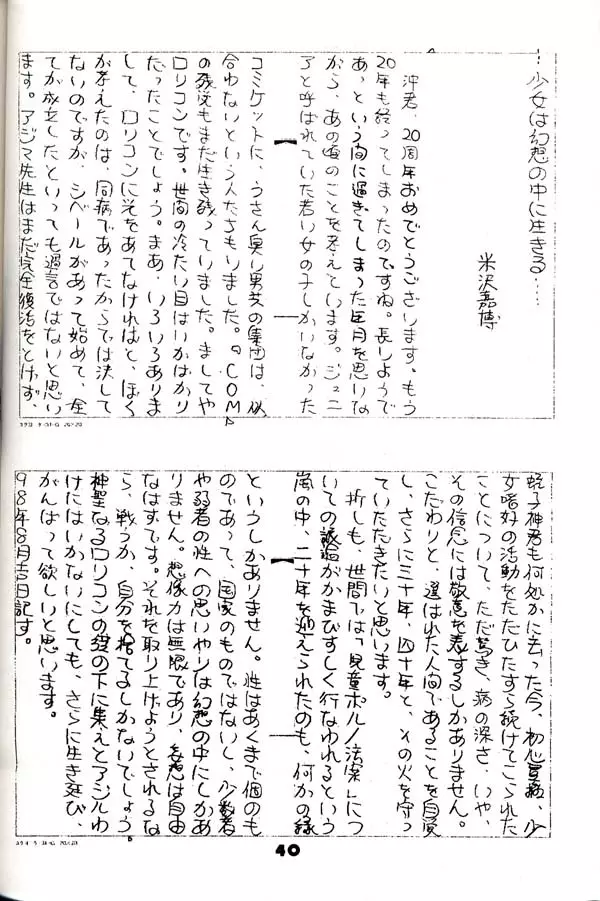 少女は幻想の中に生きる‥‥
米沢嘉博
沖君、20周年おめでとうございます。もう
20年も経ってしまったのですね。長しようで
あっという間に過ぎてしまった年月を思いな
がら、あの頃のことを考えています。ジュニ
アと呼ばれていた若い女の子しかいなかった
コミケットに、うさん臭い男共の集団は、似
合わないという人たちもいました。『COM』
の残党もまだ生き残っていました。ましてや
ロリコンです。世間の冷たい目はいかばかり
だったことでしょう。まあ、いろいろありま
して、ロリコンに光をあてなければと、ぼく
が考えたのは、同病であったからでは決して
ないのですが、シベールがあって始めて、全
てが成立したといっても過言ではないと思い
ます。アジマ先生はまだ完全復活をとげず、
コクヨ ケ-31-G 20×20
蛭子神君も何処かに去った今、初心貫徹、少
女嗜好の活動をただひたすら続けてこられた
ことについて、ただ驚き、病の深さ、いや、
その信念には敬意を表するしかありません。
こだわりと、選ばれた人間であることを自覚
し、さらに三十年、四十年と、その火を守っ
ていただきたいと思います。
折しも、世間では「児童ポルノ法案」につ
いての議論がかまびすしく行なわれるという
嵐の中、二十年を迎えられたのも、何かの縁
というしかありません。性はあくまで個のも
のであって、国家のものではないし、少数者
や弱者の性への思いやりは幻想の中にしかあ
りません。想像力は無限であり、妄想は自由
なはずです。それを取り上げようとされるな
ら、戦うか、自分を捨てるしかないでしょう。
神聖なるロリコンの旗の下に集えとアジルわ
けにはいかないにしても、さらに生き延び、
がんばって欲しいと思います。
98年8月吉日記す。
コクヨ ケ-31-G 20×20
40